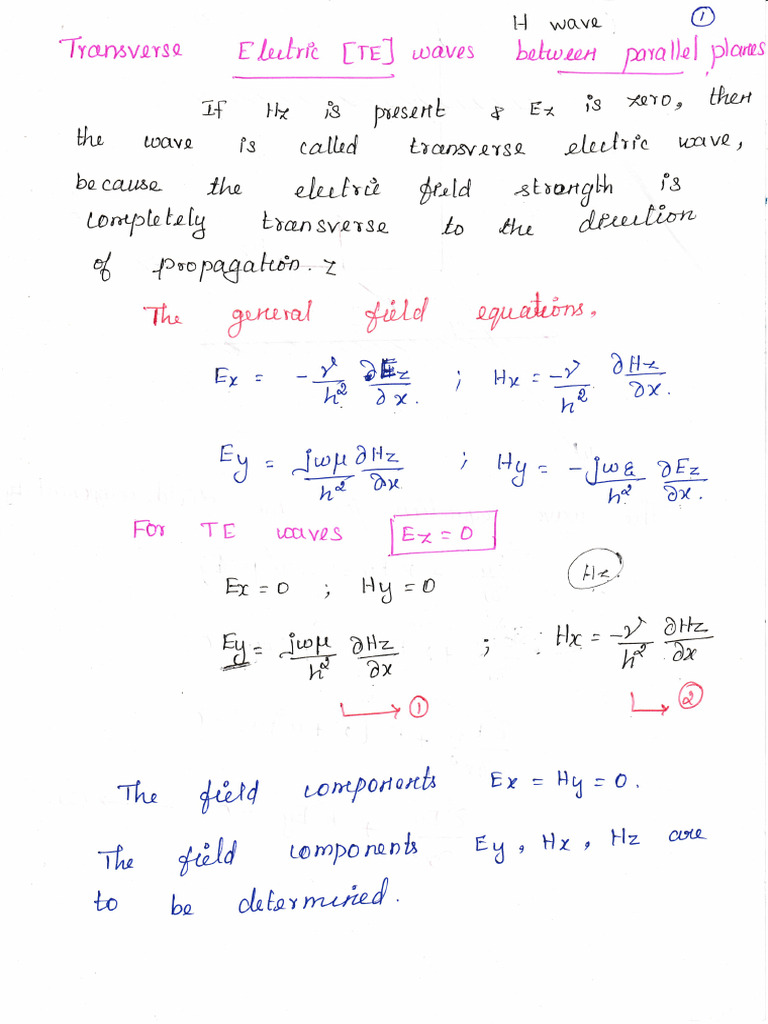 H wave ①
Transverse Electric [TE] waves between parallel planes
If Hz is present & Ez is zero, then
the wave is called transverse electric wave,
because the electric field strength is
completely transverse to the direction
of propagation. z
The general field equations.
Ex = -γ/h² ∂Ez/∂x. ; Hx = -γ/h² ∂Hz/∂x.
Ey = jωμ/h² ∂Hz/∂x ; Hy = -jωε/h² ∂Ez/∂x.
For TE waves Ez = 0
Ex = 0 ; Hy = 0 Hz
Ey = jωμ/h² ∂Hz/∂x ; Hx = -γ/h² ∂Hz/∂x
→ ① → ②
The field components Ex = Hy = 0.
The field components Ey, Hx, Hz are
to be determined.